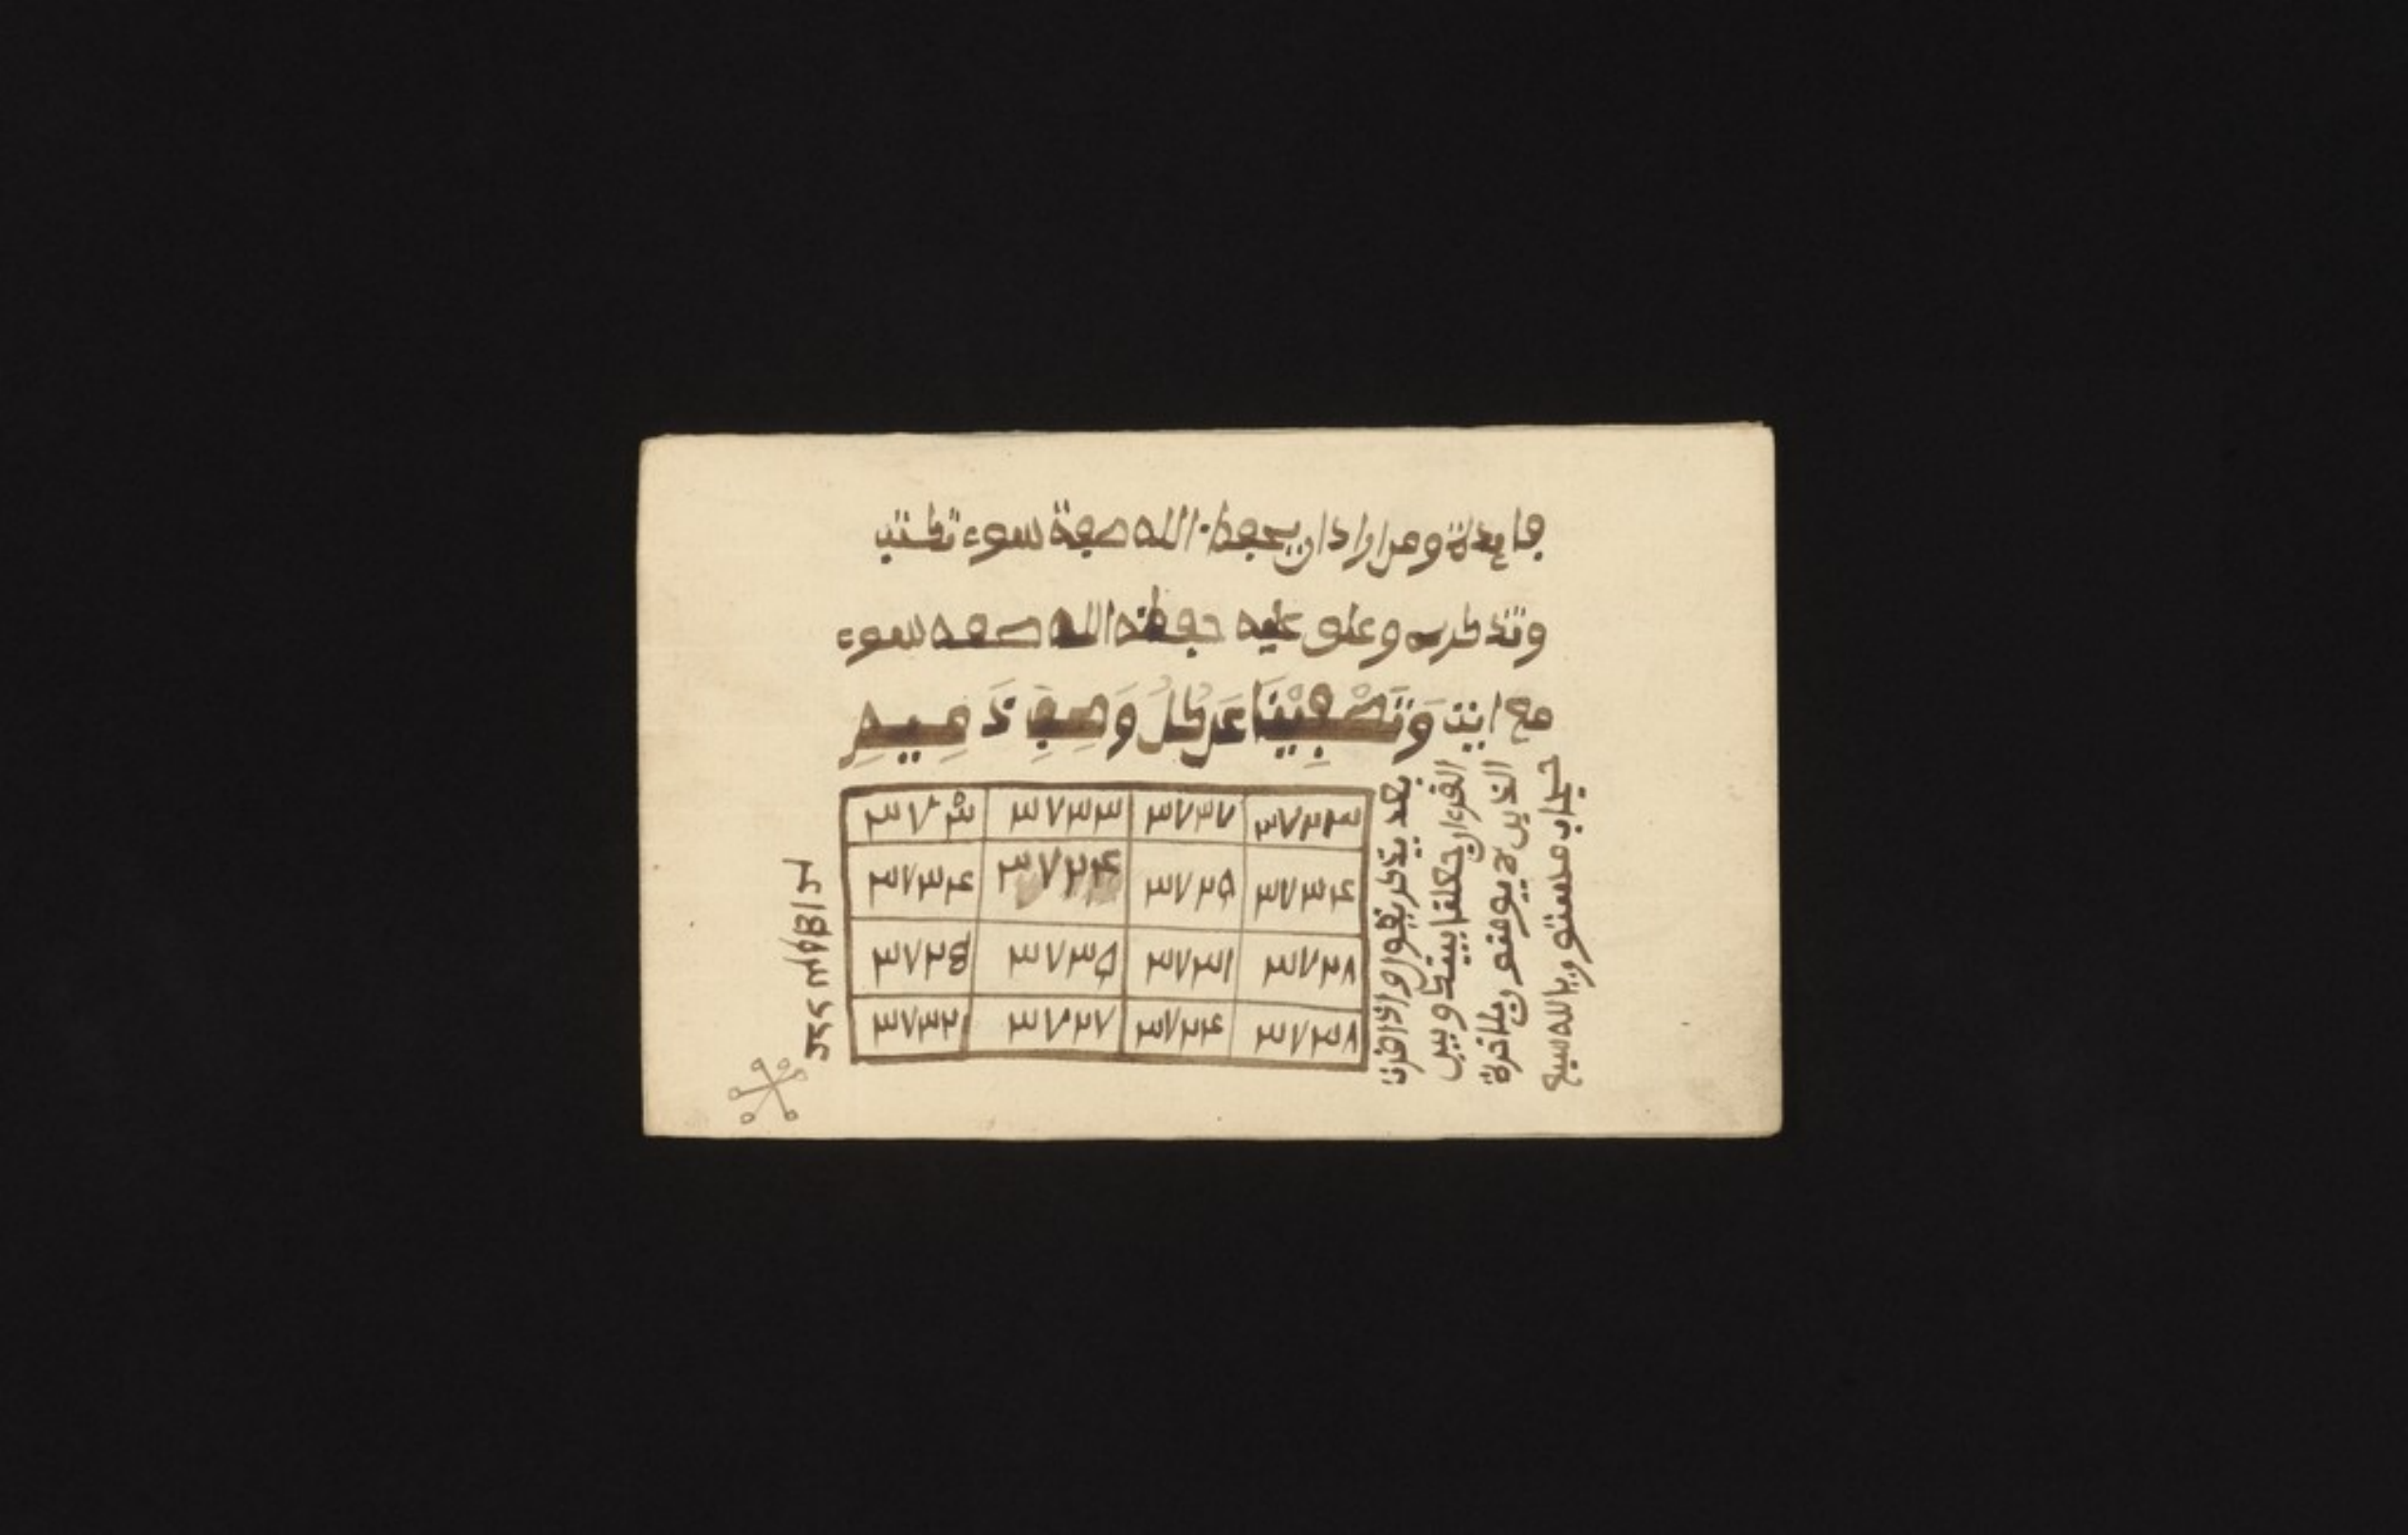 فايدة ومن اراد ان يحفظ الله صفة سوء تكتب
وتذكره وعلق عليه حفظه الله صفه سوء
مع ايت وَتَصْفِيْنَا عَن كُلِّ وَصِفِ ذَمِيمِ
٣٧٣ ٣٧٣٣ ٣٧٣٧ ٣٧٢٣
٣٧٣۴ ٣٧٢۴ ٣٧٢٥ ٣٧٣۴
٣٧٢ ٣٧٣٥ ٣٧٣١ ٣٧٢٨
٣٧٣٢ ٣٧٢٧ ٣٧٢۴ ٣٧٣٨
بعد يذكر يقول واذا قرات
القرءان جعلنا بينك وبين
الذين لا يومنون بلاخرة
حجاب مستورا يا الله سيع